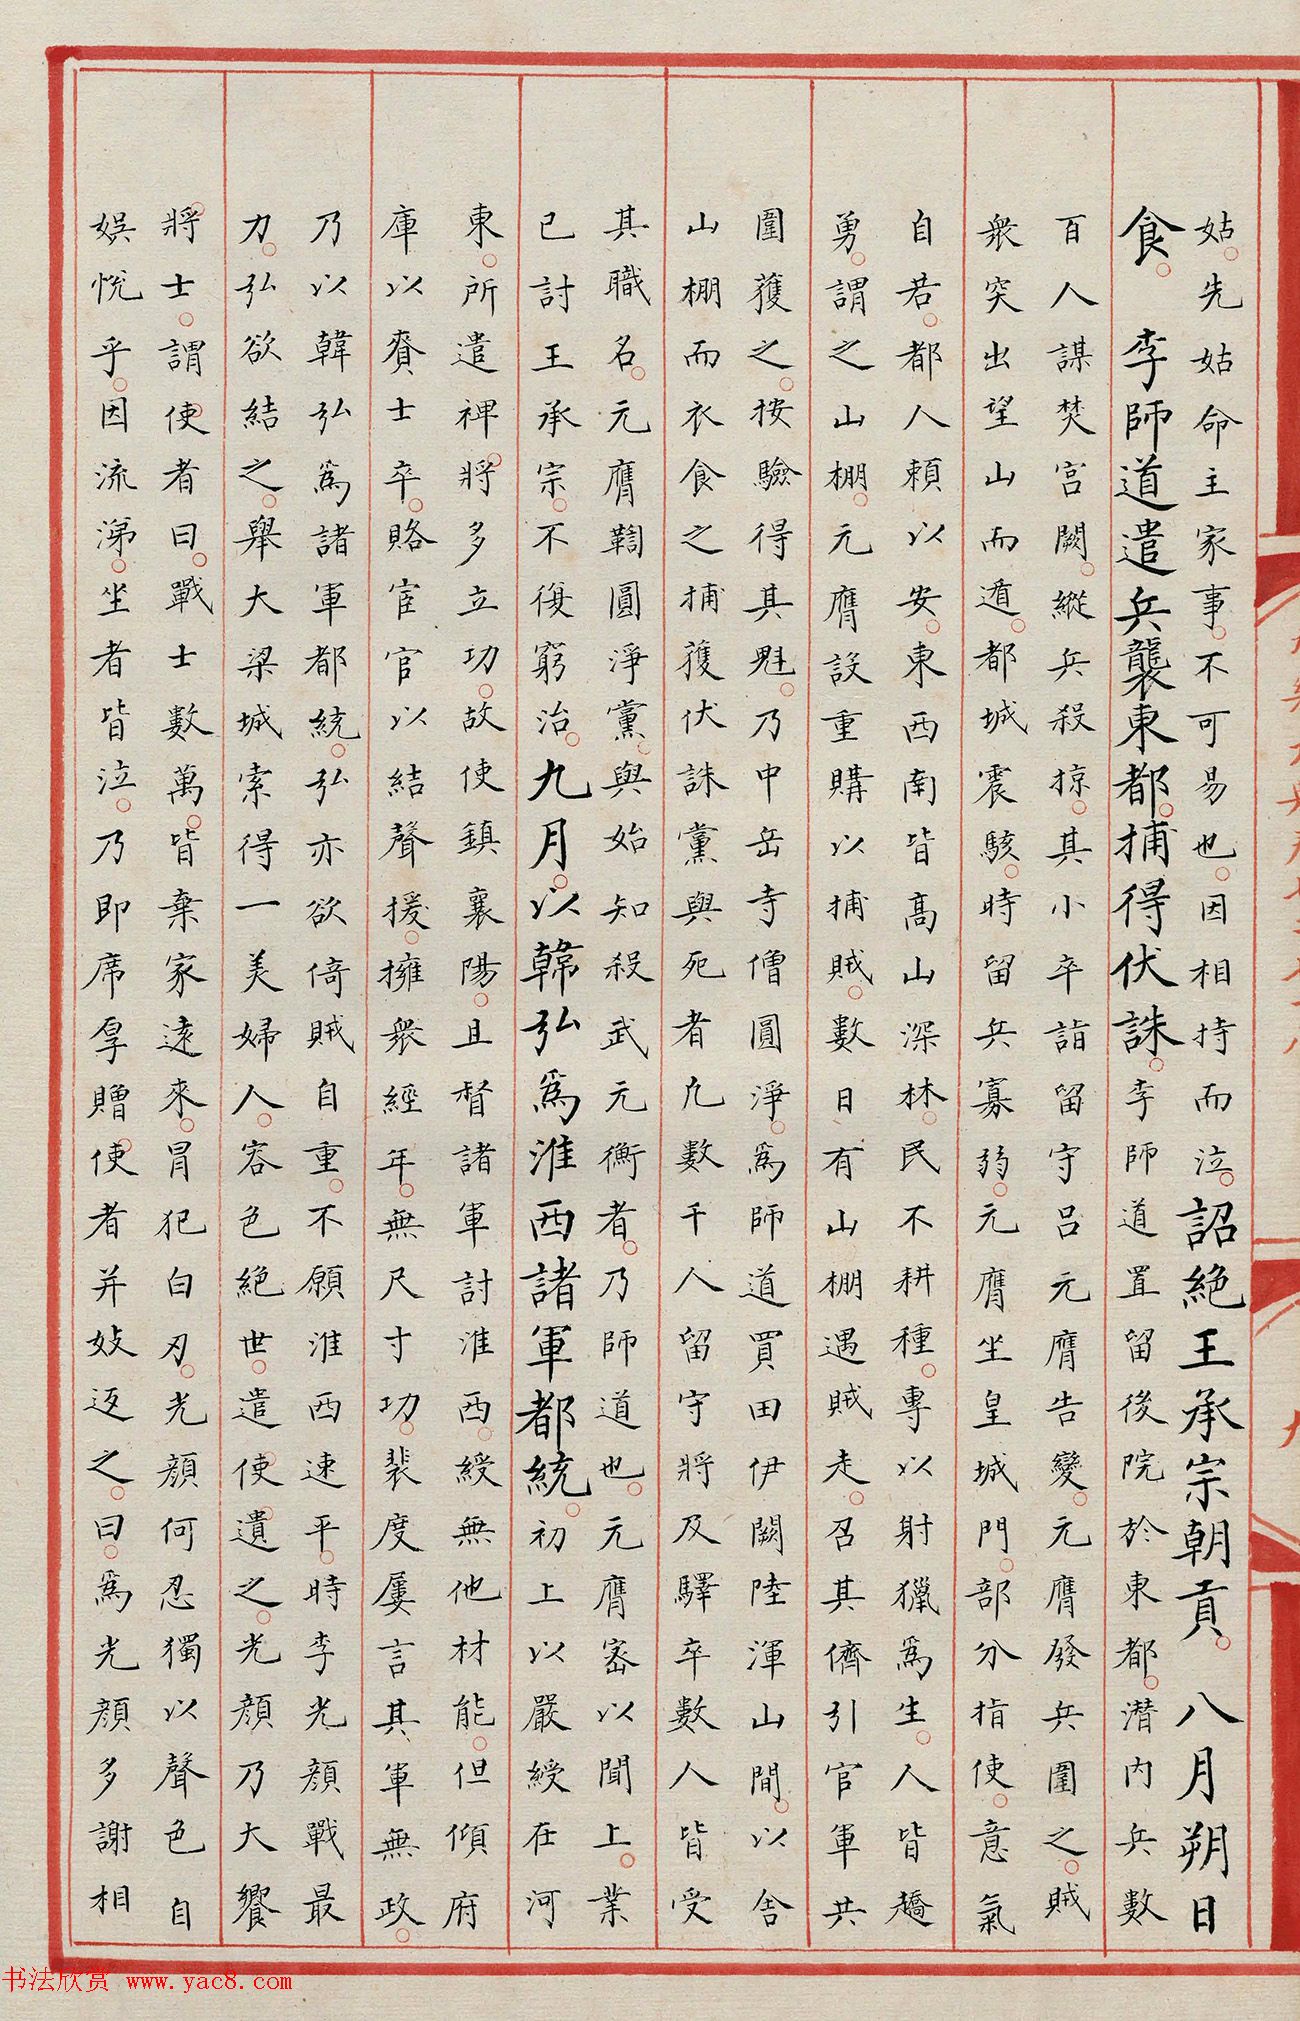 姑。先姑命主家事。不可易也。因相持而泣。詔絕王承宗朝貢。 八月朔日
食。 李師道遣兵襲東都。捕得伏誅。李師道置留後院於東都。潛内兵數
百人謀焚宮闕。縱兵殺掠。其小卒詣留守呂元膺告變。元膺發兵圍之。賊
衆突出望山而遁。都城震駭。時留兵寡弱。元膺坐皇城門。部分指使。意氣
自若。都人賴以安。東西南皆高山深林。民不耕種。專以射獵爲生。人皆趫
勇。謂之山棚。元膺設重購以捕賊。數日有山棚遇賊走。召其儕引官軍共
圍獲之。按驗得其魁。乃中岳寺僧圓淨。爲師道買田伊闕陸渾山間。以舍
山棚而衣食之捕獲伏誅黨與死者凡數千人留守將及驛卒數人皆受
其職名。元膺鞫圓淨黨。與始知殺武元衡者。乃師道也。元膺密以聞上。業
已討王承宗。不復窮治。九月。以韓弘爲淮西諸軍都統。初上以嚴綬在河
東。所遣裨將多立功。故使鎮襄陽。且督諸軍討淮西。綬無他材能。但傾府
庫以賚士卒。賂宦官以結聲援。擁衆經年。無尺寸功。裴度屢言其軍無政。
乃以韓弘爲諸軍都統。弘亦欲倚賊自重。不願淮西速平。時李光顔戰最
力。弘欲結之。舉大梁城索得一美婦人。容色絕世。遣使遺之。光顔乃大饗
將士。謂使者曰。戰士數萬。皆棄家遠來。冒犯白刃。光顔何忍獨以聲色自
娛悅乎。因流涕。坐者皆泣。乃即席厚贈。使者并妓返之。曰。爲光顔多謝相
书法欣赏 www.yac8.com